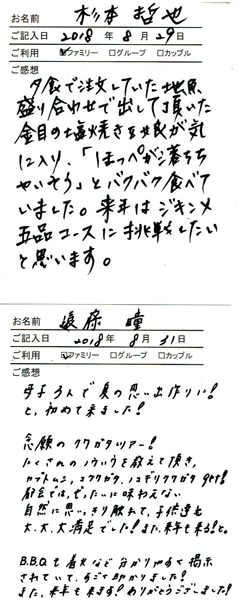 お名前 杉本 哲也
ご記入日 2018年 8月 29日
ご利用 ☑ファミリー □グループ □カップル
ご感想
夕食で注文していた地魚
盛り合わせで出して頂いた
金目の塩焼きを娘が気
に入り、「ほっぺが落ちち
ゃいそう」とバクバク食べて
いました。来年はジキンメ
五品コースに挑戦したい
と思います。
お名前 遠藤 瞳
ご記入日 2018年 8月 31日
ご利用 ☑ファミリー □グループ □カップル
ご感想
母子3人で夏の思い出作りに!
と、初めて来ました!
念願のクワガタツアー!
たくさんのノウハウを教えて頂き、
カブトムシ、コクワガタ、ノコギリクワガタ get!
都会では、ぜったいに味わえない
自然に思いっきり触れて、子供達も
大、大、大満足でした!また、来年も来る!と。
B.B.Qも着火など分かりやすく掲示
されていて、すごく助かりました!
また、来年も来ます!ありがとうございました!